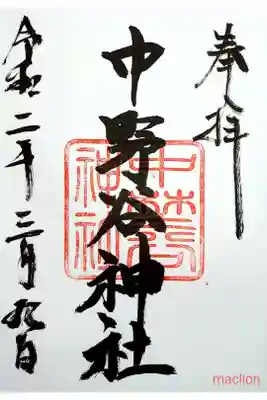 奉拝
中野谷神社
令和二年三月九日
maclion